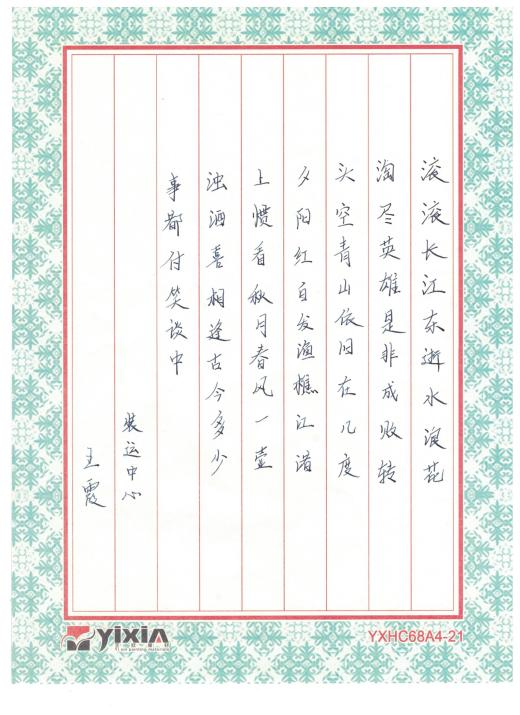 滚滚长江东逝水浪花
淘尽英雄是非成败转
头空青山依旧在几度
夕阳红白发渔樵江渚
上惯看秋月春风一壶
浊酒喜相逢古今多少
事都付笑谈中
装运中心
王霞
YIXIN
YXHC68A4-21